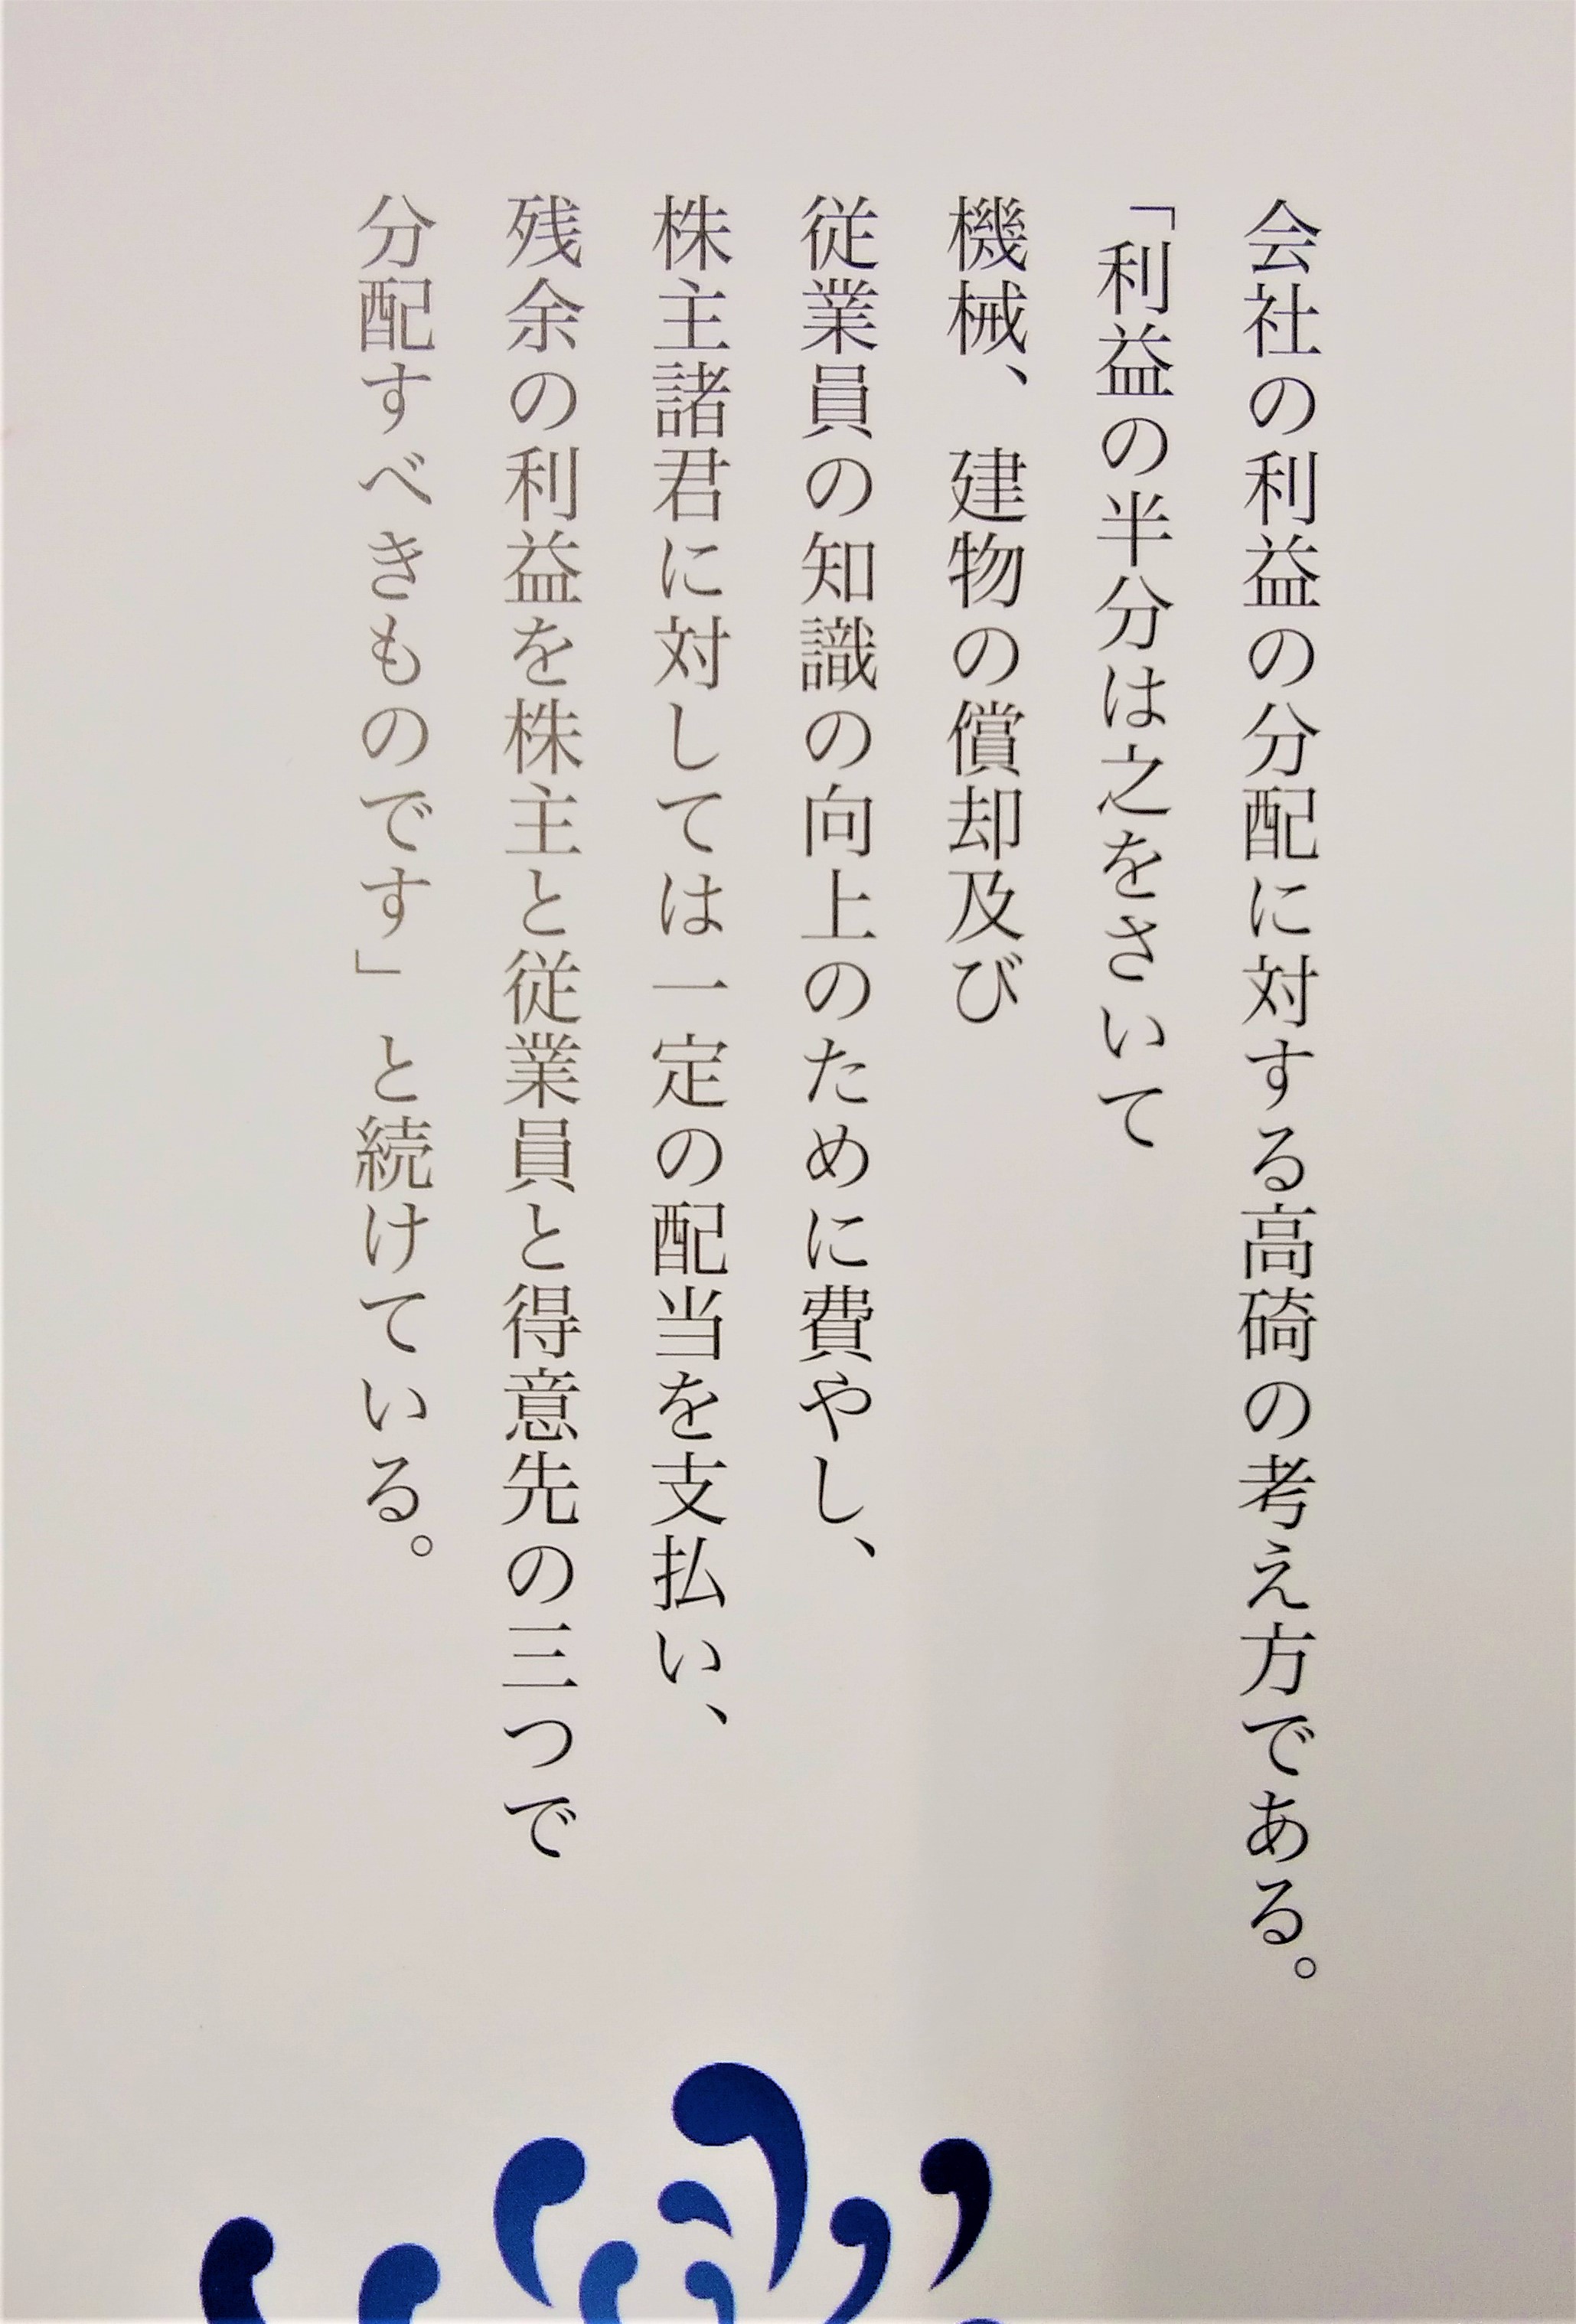 会社の利益の分配に対する高碕の考え方である。
「利益の半分は之をさいて
機械、建物の償却及び
従業員の知識の向上のために費やし、
株主諸君に対しては一定の配当を支払い、
残余の利益を株主と従業員と得意先の三つで
分配すべきものです」と続けている。